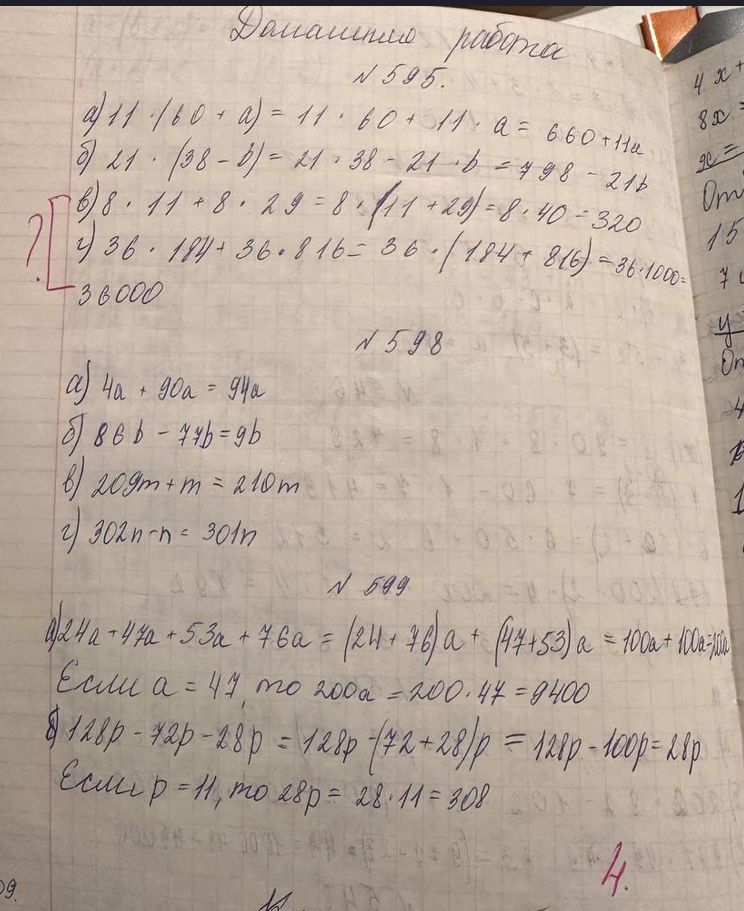 Домашняя работа
№595.
а) 11 · (60 + а) = 11 · 60 + 11 · а = 660 + 11а
б) 21 · (38 - b) = 21 · 38 - 21 · b = 798 - 21b
в) 8 · 11 + 8 · 29 = 8 · (11 + 29) = 8 · 40 = 320
?
г) 36 · 184 + 36 · 816 = 36 · (184 + 816) = 36 · 1000 =
36000
№598
а) 4а + 90а = 94а
б) 86b - 77b = 9b
в) 209m + m = 210m
г) 302n - n = 301n
№599
а) 24а + 47а + 53а + 76а = (24 + 76)а + (47 + 53)а = 100а + 100а = 200а
Если а = 47, то 200а = 200 · 47 = 9400
б) 128p - 72p - 28p = 128p - (72 + 28)p = 128p - 100p = 28p
Если p = 11, то 28p = 28 · 11 = 308
4.
4x +
8x =
x =
От
15
7
y
От
09.